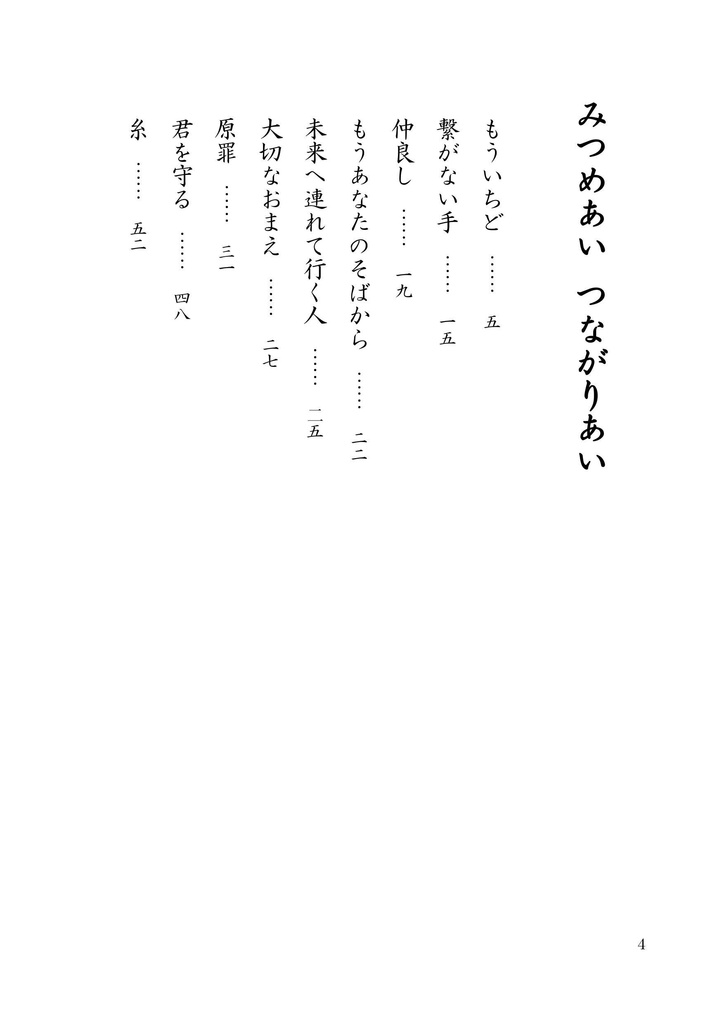 みつめあい つながりあい
もういちど …… 五
繋がない手 …… 一五
仲良し …… 一九
もうあなたのそばから …… 二二
未来へ連れて行く人 …… 二五
大切なおまえ …… 二七
原罪 …… 三一
君を守る …… 四八
糸 …… 五二
4